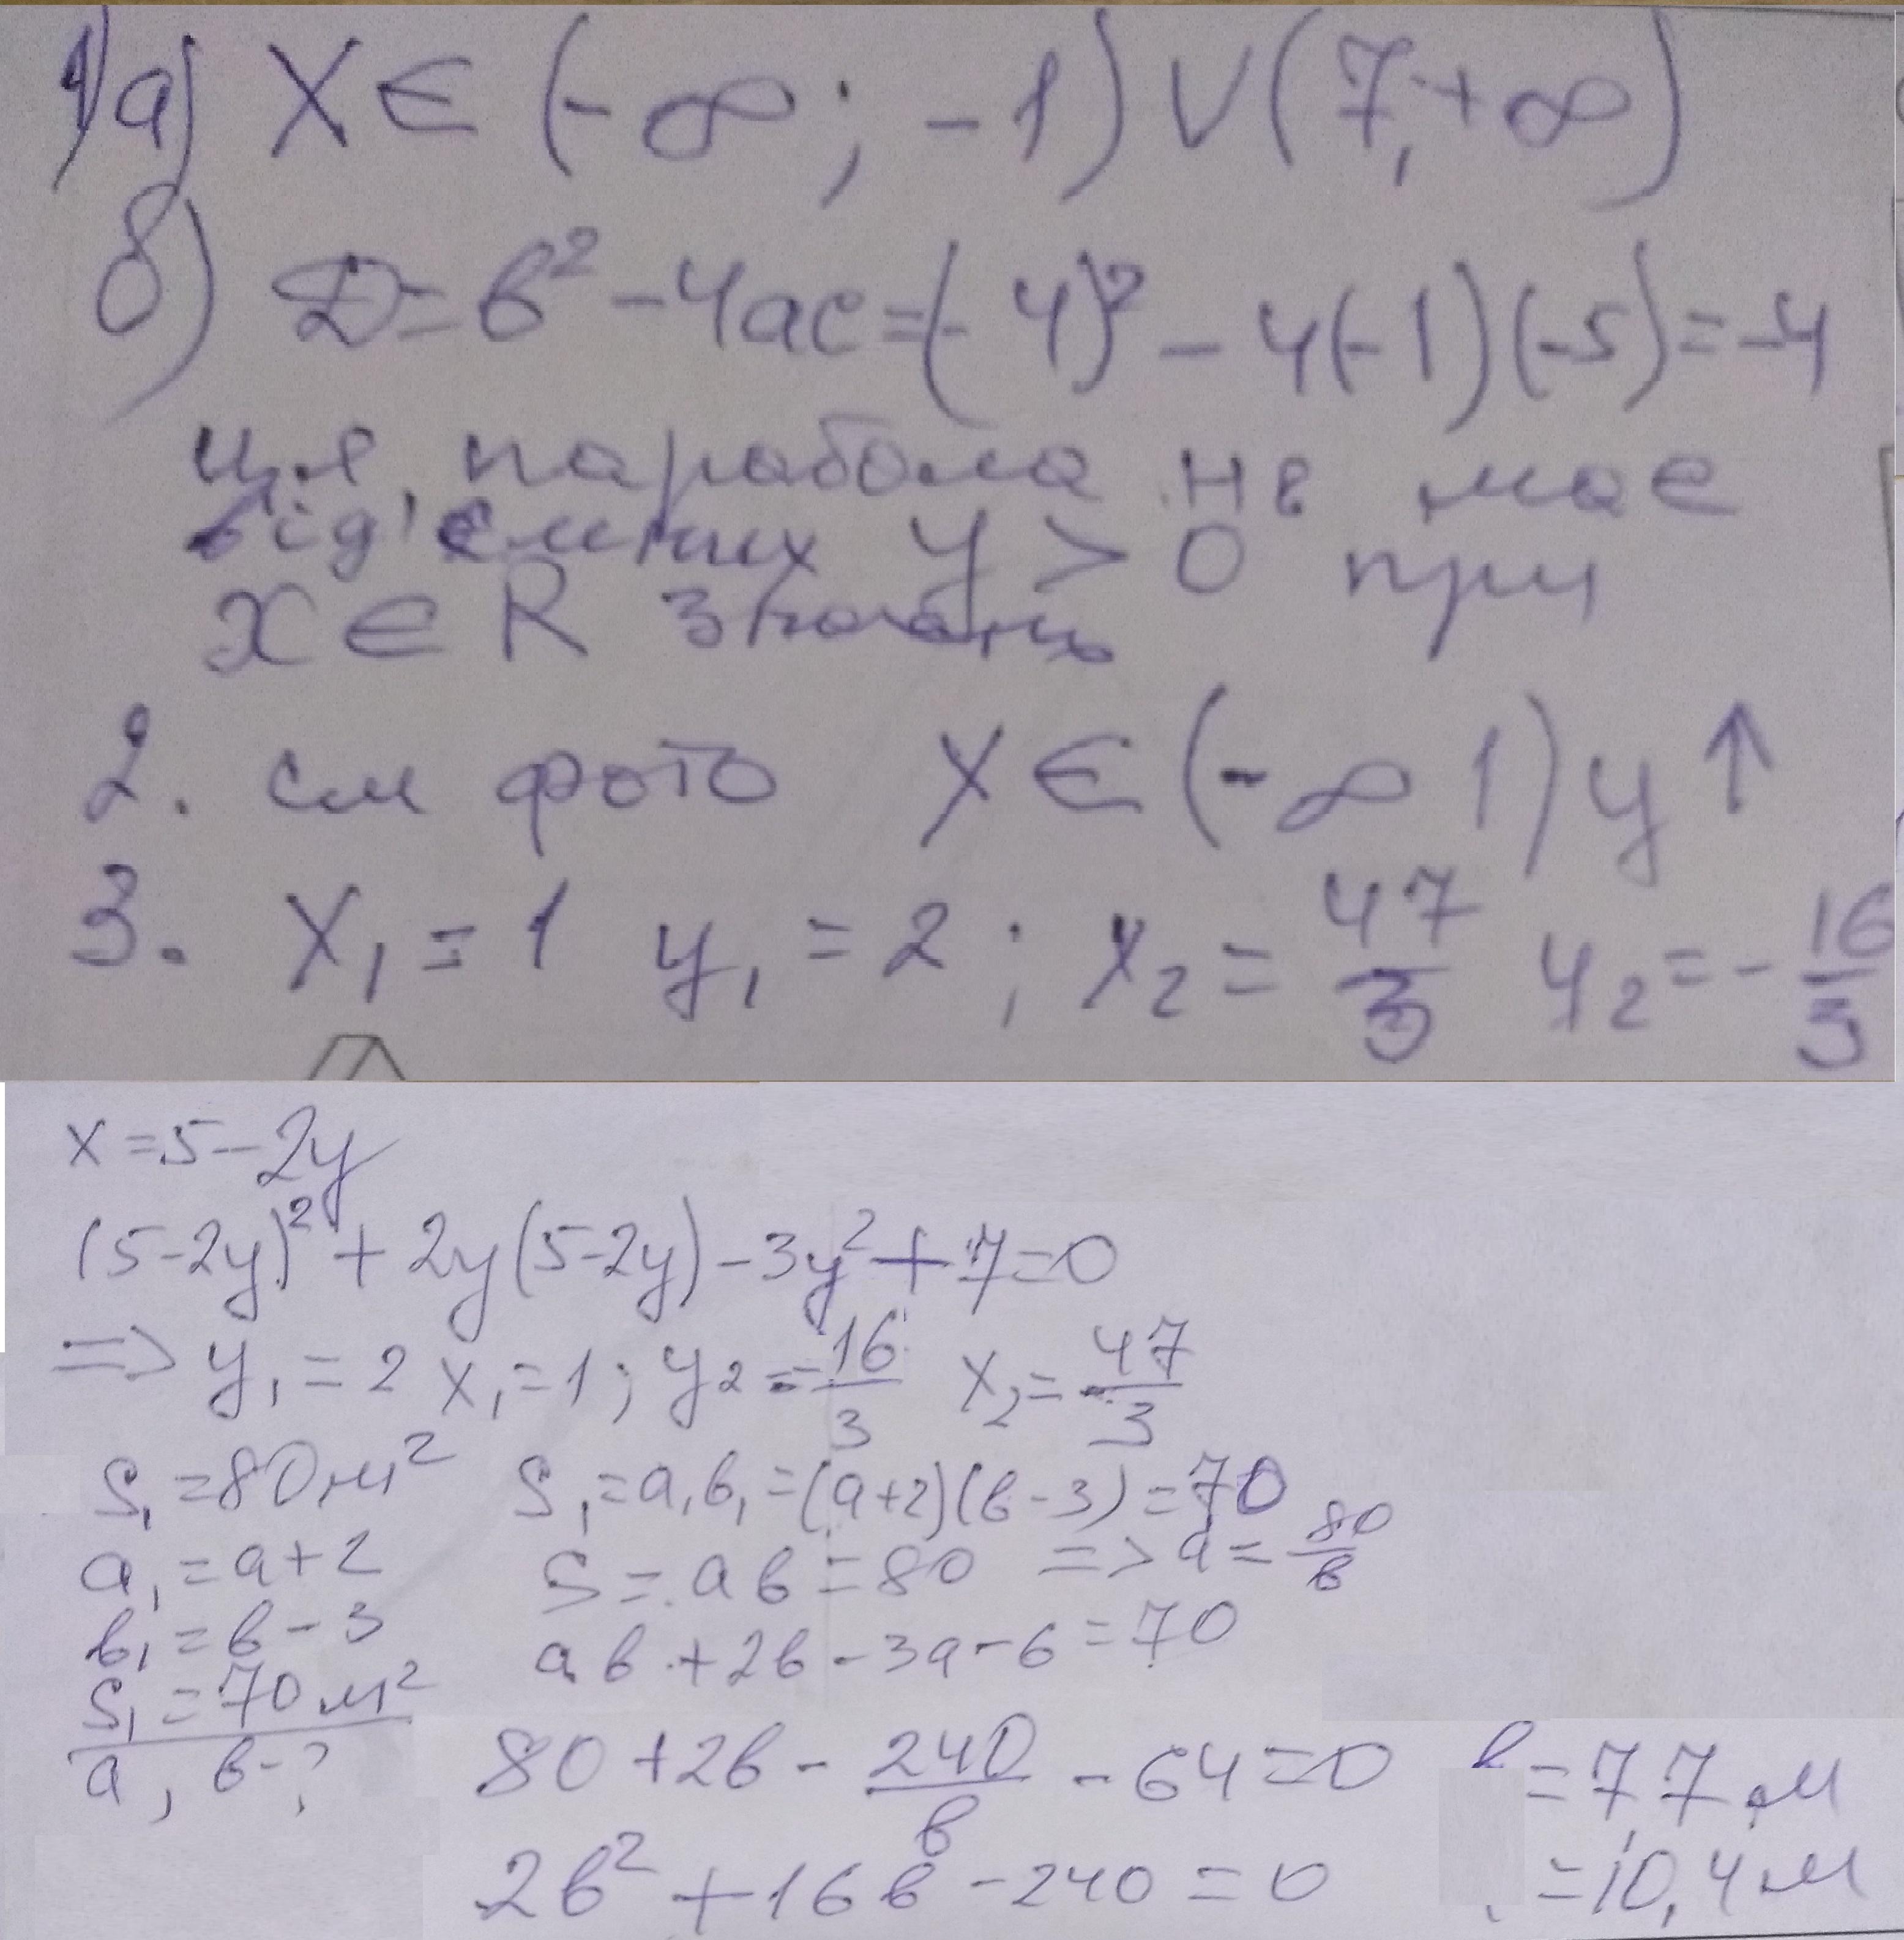 1) а) X ∈ (-∞; -1) ∪ (7, +∞)
б) D = в² - 4ac = (-4)² - 4(-1)(-5) = -4
ця парабола не має
від'ємних y > 0 при
x ∈ R значень
2. см фото X ∈ (-∞ 1) y ↑
3. X₁ = 1 y₁ = 2 ; x₂ = 47/3 y₂ = -16/3
x = 5 - 2y
(5-2y)² + 2y(5-2y) - 3y² + 7 = 0
=> y₁ = 2 x₁ = 1 ; y₂ = -16/3 x₂ = 47/3
S₁ = 80 м² S₁ = a₁в₁ = (a+2)(в-3) = 70
a₁ = a + 2 S = aв = 80 => a = 80/в
в₁ = в - 3
S₁ = 70 м² aв + 2в - 3a - 6 = 70
a, в - ? 80 + 2в - 240/в - 64 = 0 = 7,7 м
2в² + 16в - 240 = 0 = 10,4 м